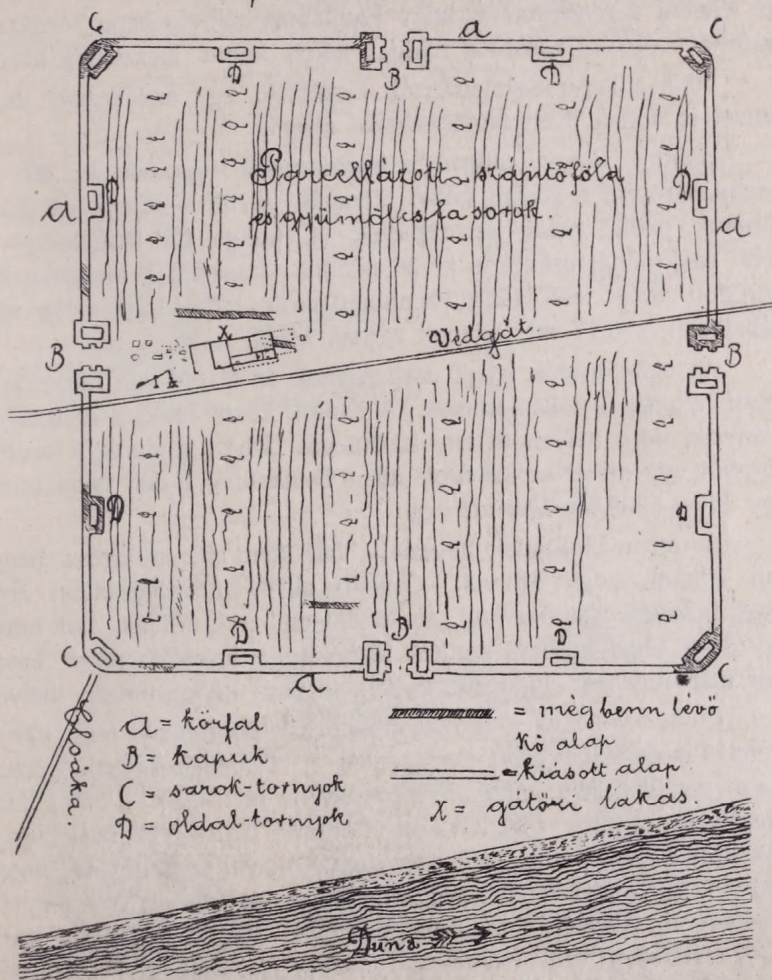 C a C
D B D
Parcellázott szántóföld
és gyümölcsfa sorok.
D D
a a
X
Védgát
B B
D D
D B D
C a C
Cloáka.
a = körfal
B = kapuk
C = sarok-tornyok
D = oldal-tornyok
= még benn lévő
kő alap
= kiásott alap
X = gátőri lakás.
Duna